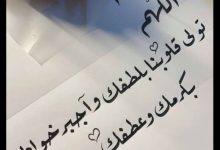 اللهم
تولى قلوبنا بلطفك وأجبر خواطرنا
بكرمك وعطفك